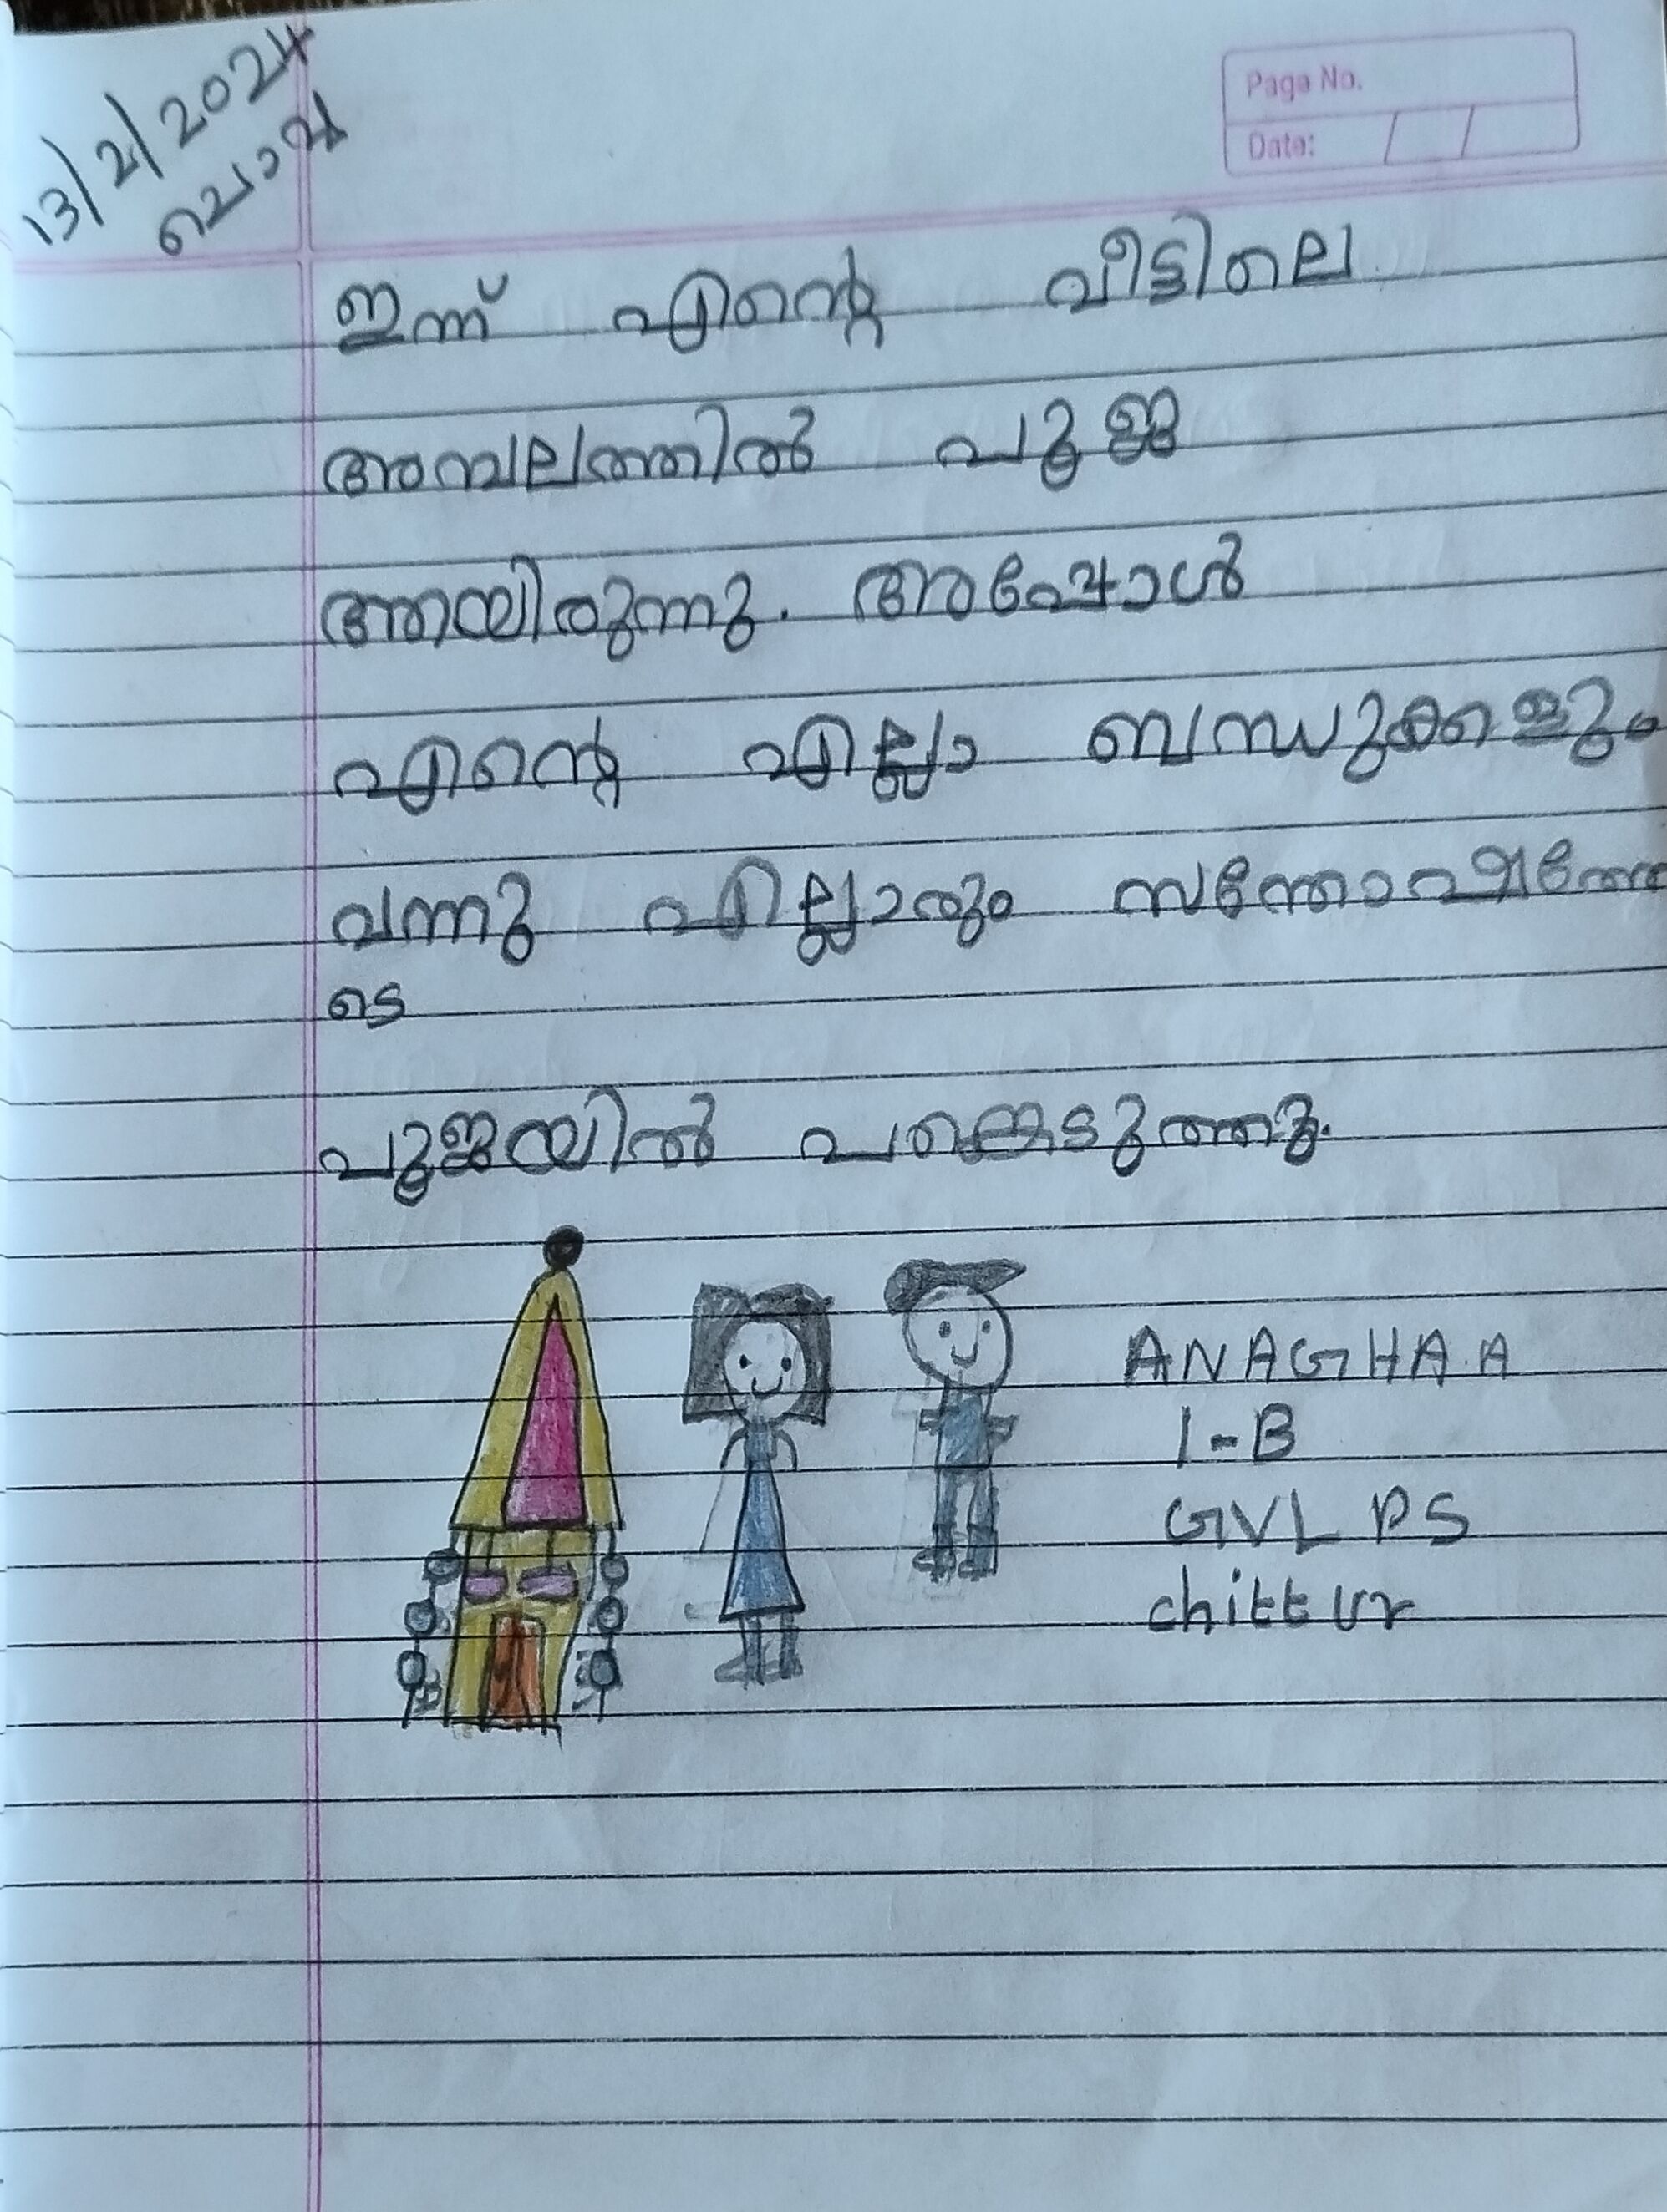 13/2/2024
ചൊവ്വ
Page No.
Date: / /
ഇന്ന് എന്റെ വീട്ടിലെ
അമ്പലത്തിൽ പൂജ
ആയിരുന്നു. അപ്പോൾ
എന്റെ എല്ലാ ബന്ധുക്കളും
വന്നു എല്ലാരും സന്തോഷത്തോ
ടെ
പൂജയിൽ പങ്കെടുത്തു.
ANAGHA.A
1-B
GVLPS
chittur